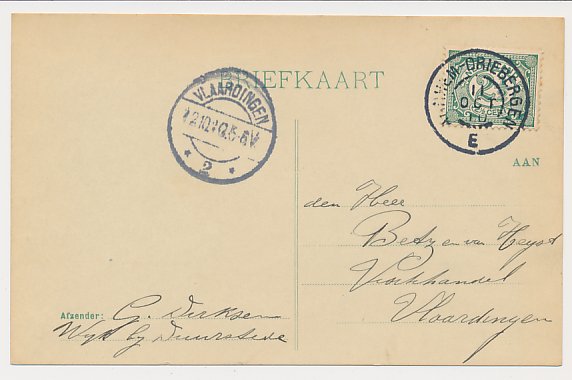 BRIEFKAART
VLAARDINGEN
2
DRIEBERGEN
1
OCT
10
E
AAN
den Heer
Betz en van Heyst
Vischhandel
Vlaardingen
Afzender: G. Dirksen
Wyk by Duurstede